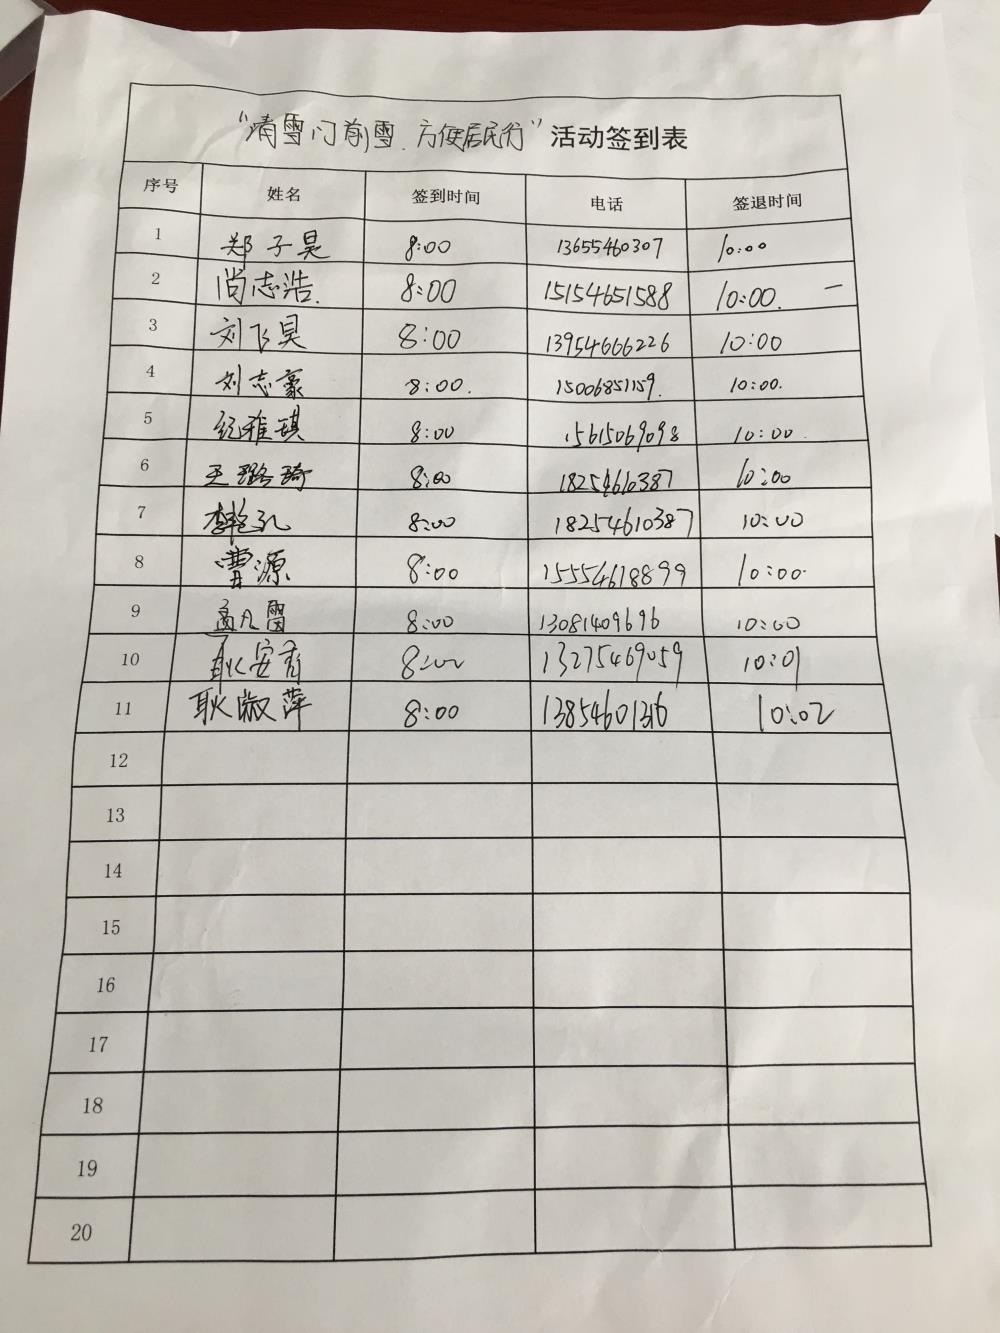 “清雪门前雪.方便居民行”活动签到表
序号 姓名 签到时间 电话 签退时间
1 郑子昊 8:00 13655460307 10:00
2 尚志浩. 8:00 15154651588 10:00. 一
3 刘飞昊 8:00 13954666226 10:00
4 刘志豪 8:00. 15006851159. 10:00.
5 纪雅琪 8:00 15615069098 10:00.
6 王璐琦 8:00 18254610387 10:00
7 李艳孔 8:00 18254610387 10:00
8 曹源 8:00 15554618899 10:00.
9 孟凡雷 8:00 13081409696 10:00
10 耿安 8:00 13275469059 10:01
11 耿淑萍 8:00 13854601316 10:02
12
13
14
15
16
17
18
19
20